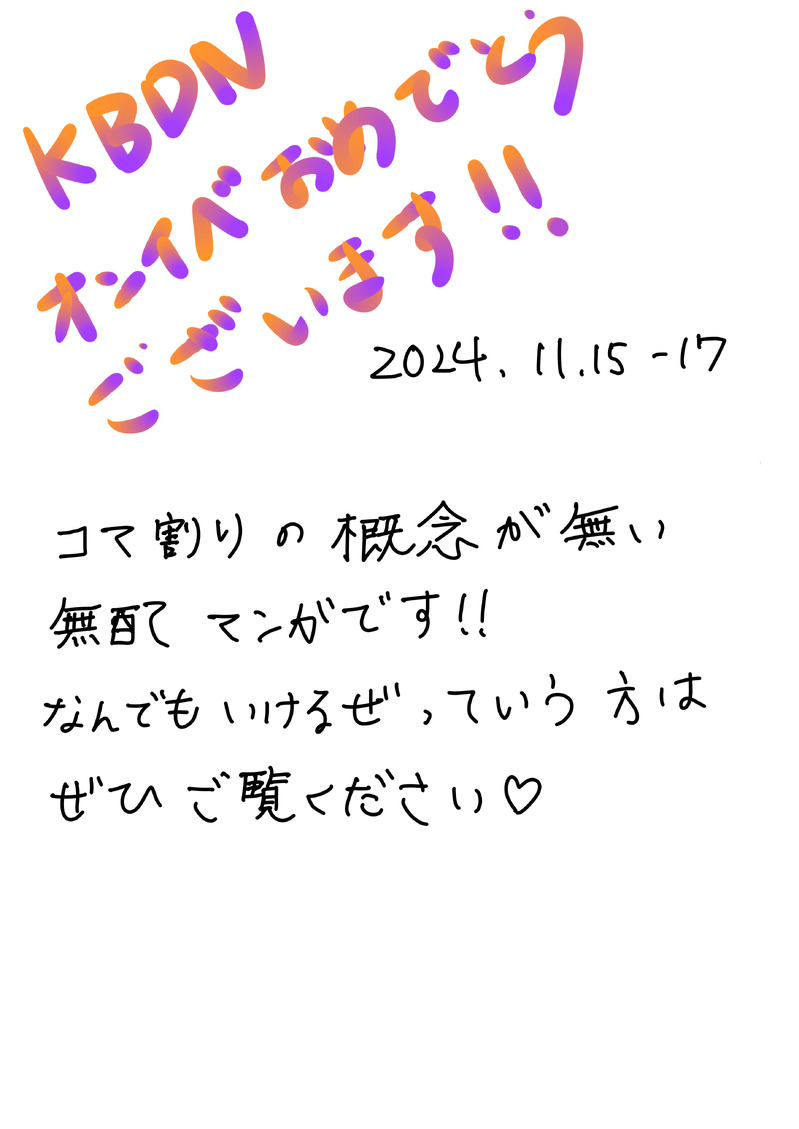 KBDN
オンイベおめでとう
ございます!!
2024.11.15-17
コマ割りの概念が無い
無配てマンガです!!
なんでもいけるぜっていう方は
ぜひご覧ください♡